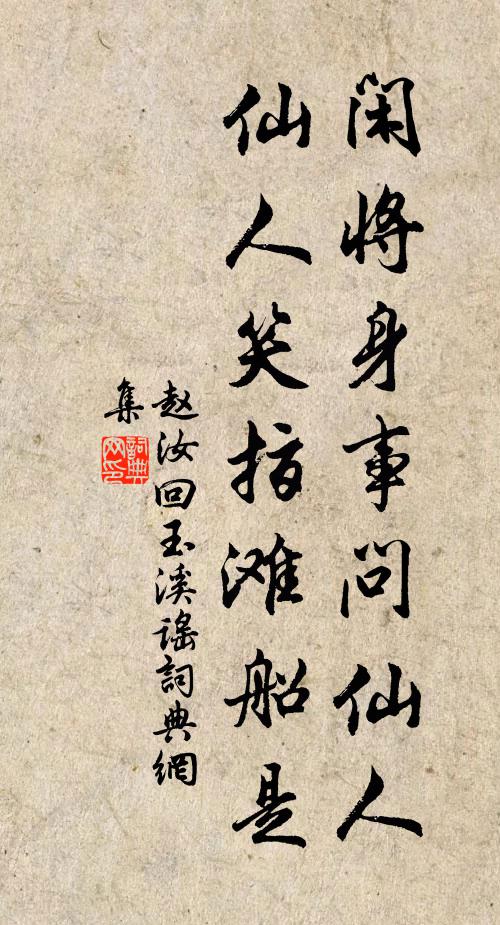 闲将身事问仙人
仙人笑指滩船是
赵汝回玉溪谣詞典網
集
詞典
网印